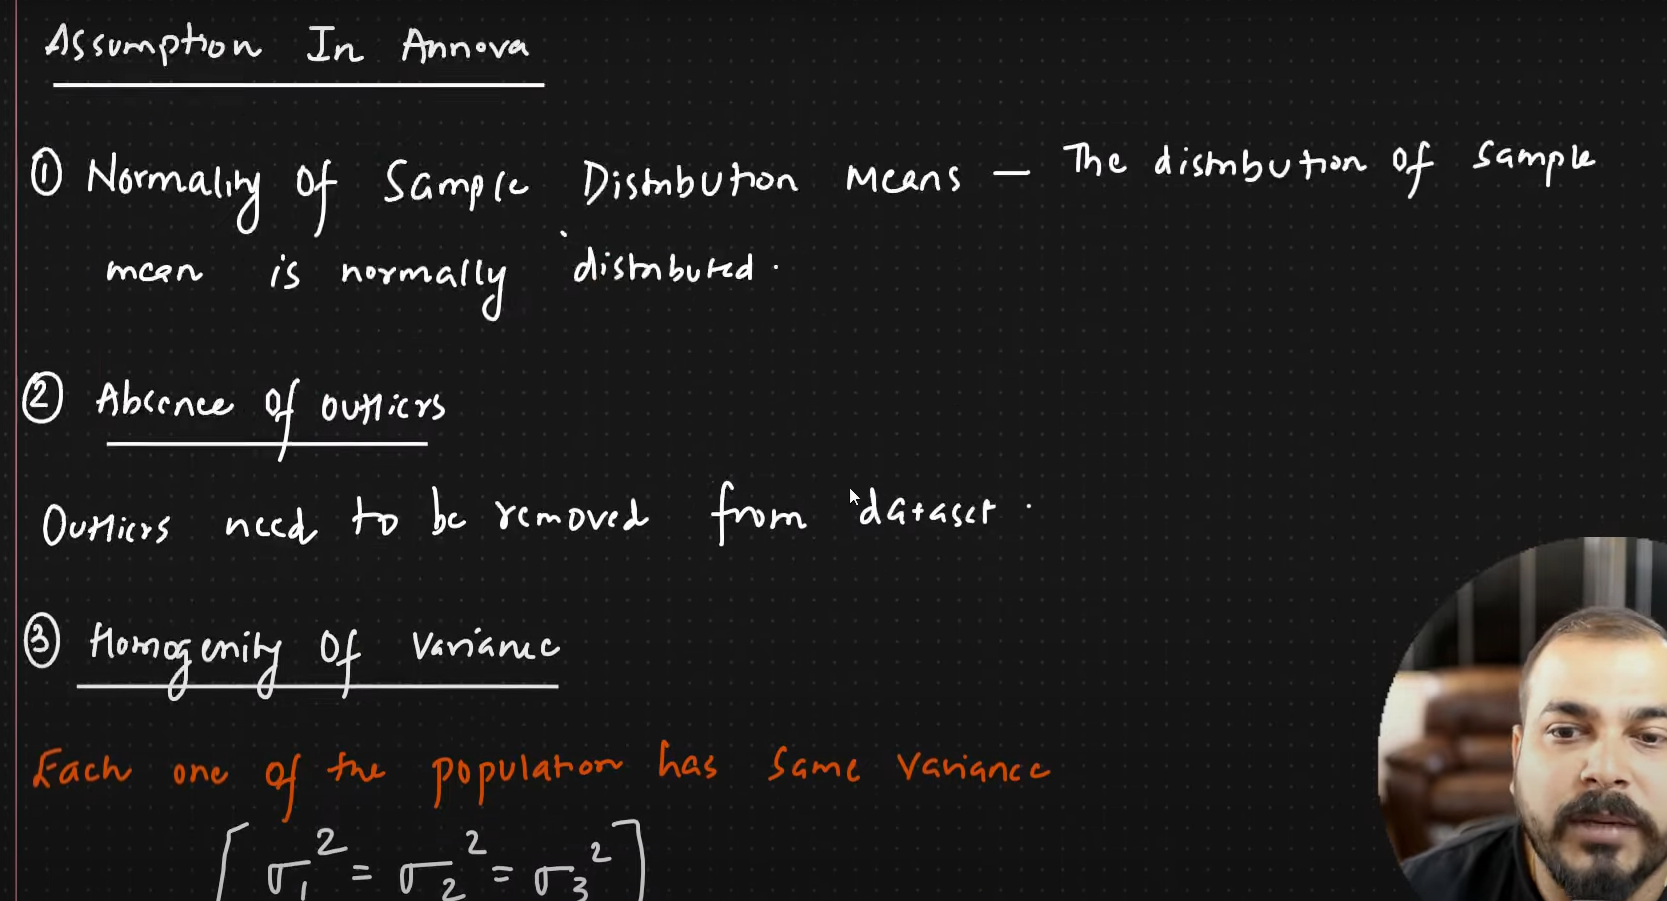 Assumption In Annova
① Normality Of Sample Distribution Means — The distribution of sample
mean is normally distributed.
② Absence of outliers
Outliers need to be removed from dataset.
③ Homogenity Of Variance
Each one of the population has same variance
[σ₁² = σ₂² = σ₃²]